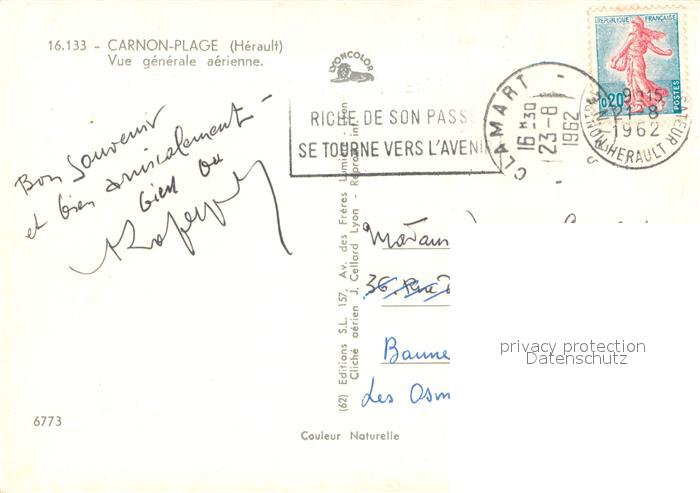 16.133 - CARNON-PLAGE (Hérault)
Vue générale aérienne.
LYONCOLOR
RICHE DE SON PASSE
SE TOURNE VERS L'AVENI
CLAMART
16 H30
23-8
1962
REPUBLIQUE FRANÇAISE
0,20
POSTES
9H15
21-8
1962
HERAULT
Bon Souvenir
et bien amicalement -
bien ou
Madam
36. Rue
Baume
Les Osm
(62) Editions S.L. 157, Av. des Frères Lumière - Lyon
Cliché aérien J. Cellard Lyon - Reprod. interdite
6773
Couleur Naturelle
privacy protection
Datenschutz